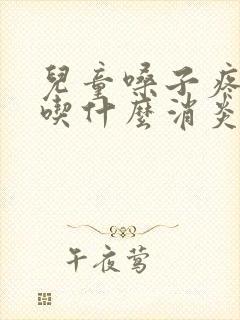 兒童嗓子疼
喫什麼消炎
午夜莺